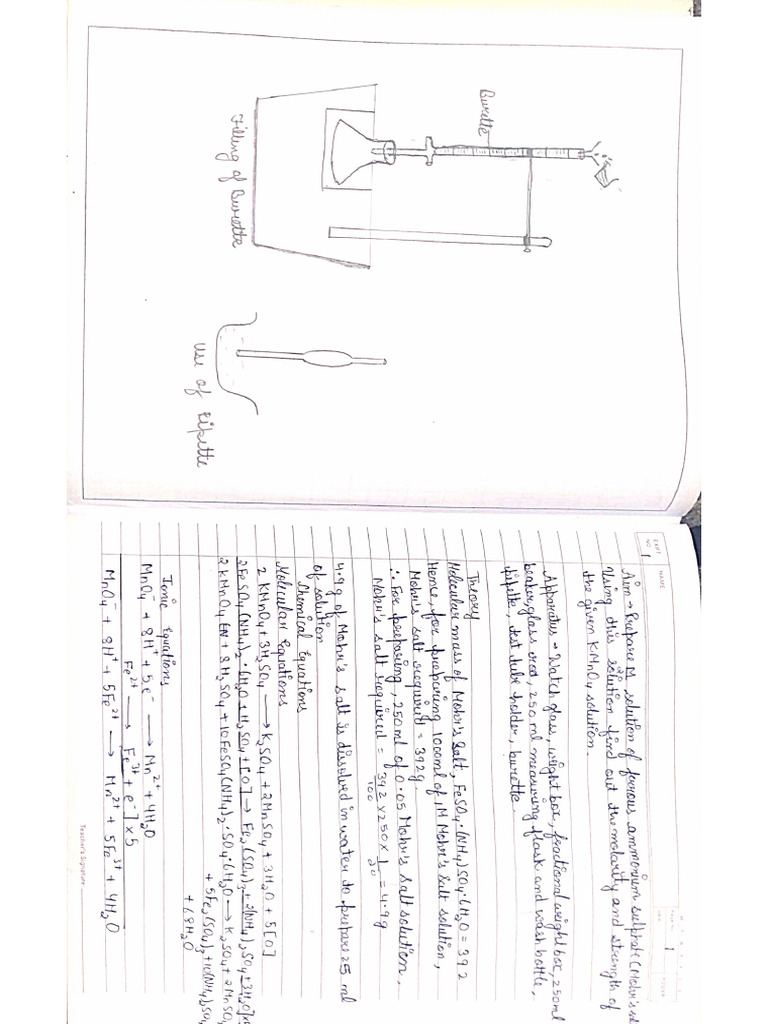 Burette
Filling of Burette
Use of Pipette
EXPT. NO. 1
NAME
1
Aim → Prepare M/20 solution of ferrous ammonium sulphate (Mohr's
Using this solution find out the molarity and strength of
the given KMnO4 solution.
Apparatus → Watch glass, weight box, fractional weight box, 250ml
beater, glass rod, 250 ml measuring flask and wash bottle,
pipette, test tube holder, burette.
Theory
Molecular mass of Mohr's Salt, FeSO4·(NH4)SO4·6H2O = 392
Hence, for preparing 1000ml of 1M Mohr's Salt solution,
Mohr's salt required = 392g.
∴ For preparing, 250 ml of 0.05 Mohr's salt solution,
Mohr's salt required = 392/100 × 250 × 1/20 = 4.9g
4.9g of Mohr's salt is dissolved in water to prepare 25 ml
of solution
Chemical Equations
Molicular Equations
2 KMnO4 + 3H2SO4 → K2SO4 + 2MnSO4 + 3H2O + 5[O]
2FeSO4(NH4)2·6H2O + H2SO4 + [O] → Fe2(SO4)3 + 2(NH4)2SO4 + 3H2O]×5
2 KMnO4 + 8 H2SO4 + 10FeSO4(NH4)2·SO4·6H2O → K2SO4 + 2MnSO4
+ 5Fe2(SO4)3 + 10(NH4)2SO4
+ 68H2O
Ionic Equations
MnO4 + 8H+ + 5e- → Mn2+ + 4H2O
Fe2+ → Fe3+ + e-] × 5
MnO4- + 8H+ + 5Fe2+ → Mn2+ + 5Fe3+ + 4H2O
Teacher's Signature